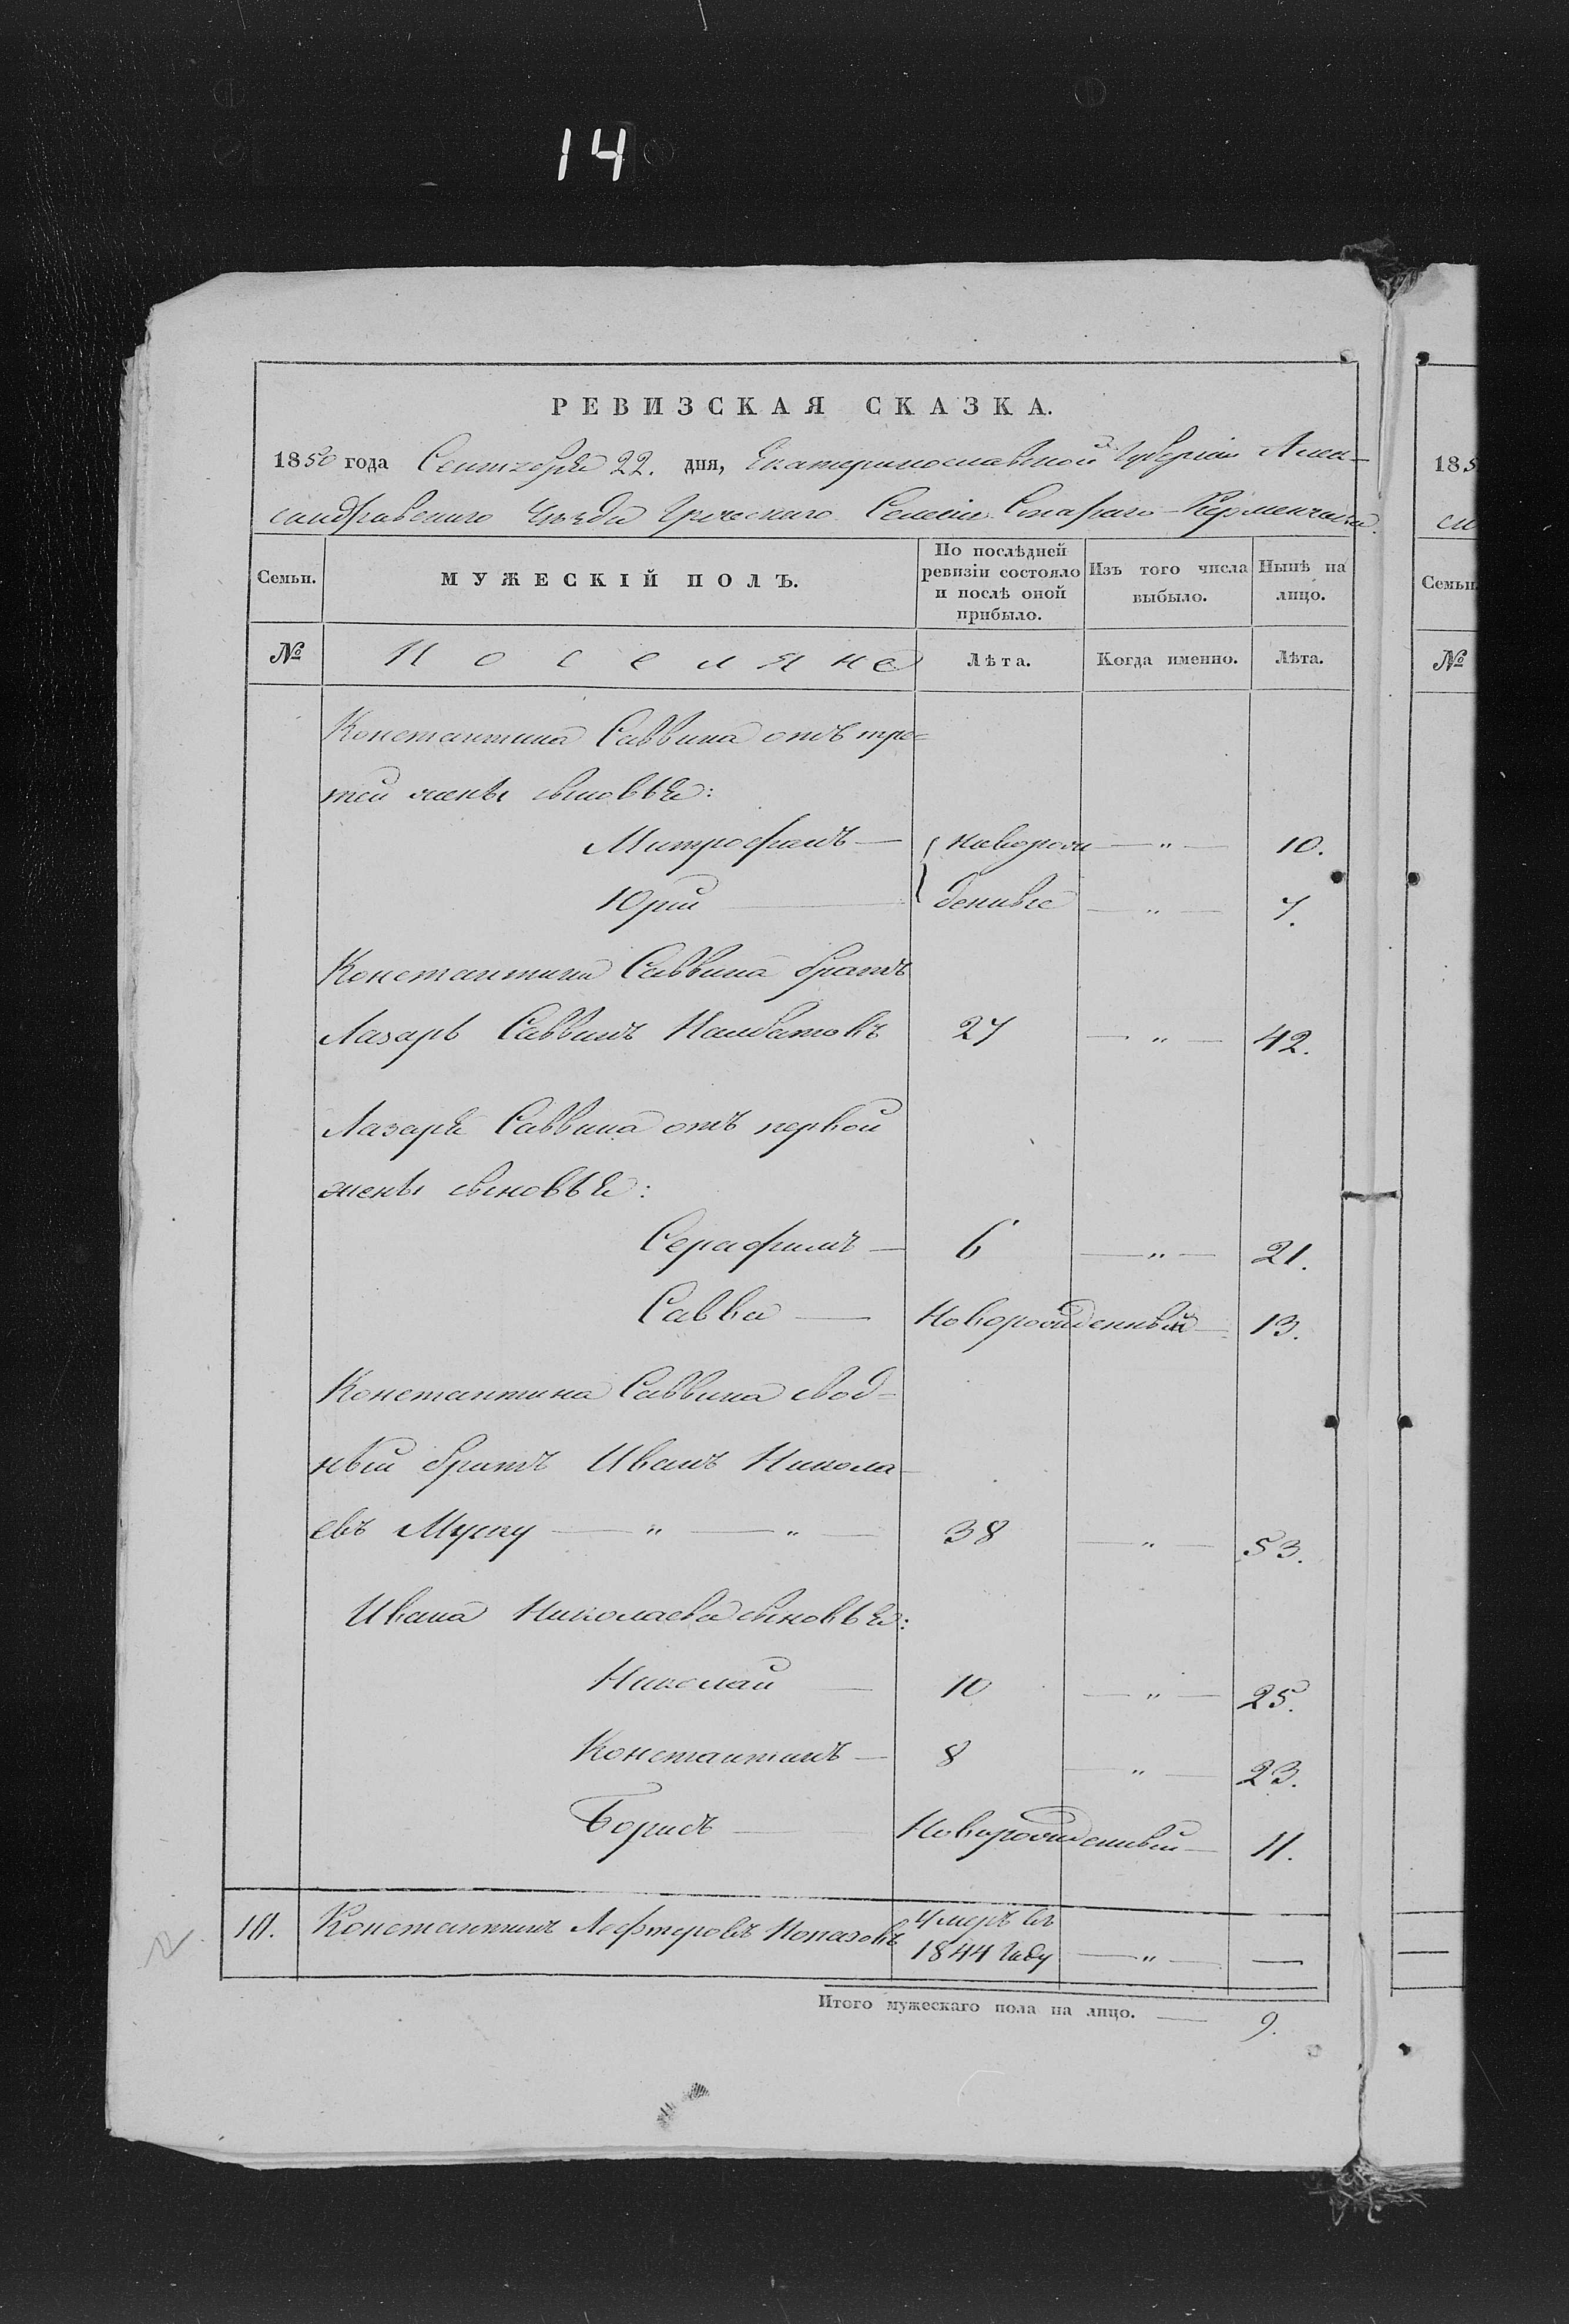 14
РЕВИЗСКАЯ СКАЗКА.
1850 года Сентября 22. дня, Екатеринославской Губерніи Алек-
сандровскаго Уѣзда Греческаго Селенія Стараго-Керменчика.
Семьи. МУЖЕСКІЙ ПОЛЪ. По послѣдней ревизіи состояло и послѣ оной прибыло. Изъ того числа выбыло. Нынѣ на лицо.
№ Поселяне Лѣта. Когда именно. Лѣта.
Константина Саввина отъ тре=
тей жены сыновья:
Митрофанъ — новорож — „ — 10.
Юрий — денные — „ — 7.
Константина Саввина братъ
Лазарь Саввинъ 27 — „ — 42.
Лазаря Саввина отъ первой
жены сыновья:
Серафимъ — 6 — „ — 21.
Савва — Новорожденный — 13.
Константина Саввина свод=
ный братъ Иванъ Никола-
евъ — „ — „ — 38 — „ — 53.
Ивана Николаева сыновья:
Николай — 10 — „ — 25.
Константинъ — 8 — „ — 23.
Борисъ — Новорожденный — 11.
Константинъ Лефтеровъ умеръ въ
1844 году — „ — —
Итого мужескаго пола на лицо. — 9.
185
Семьи
№